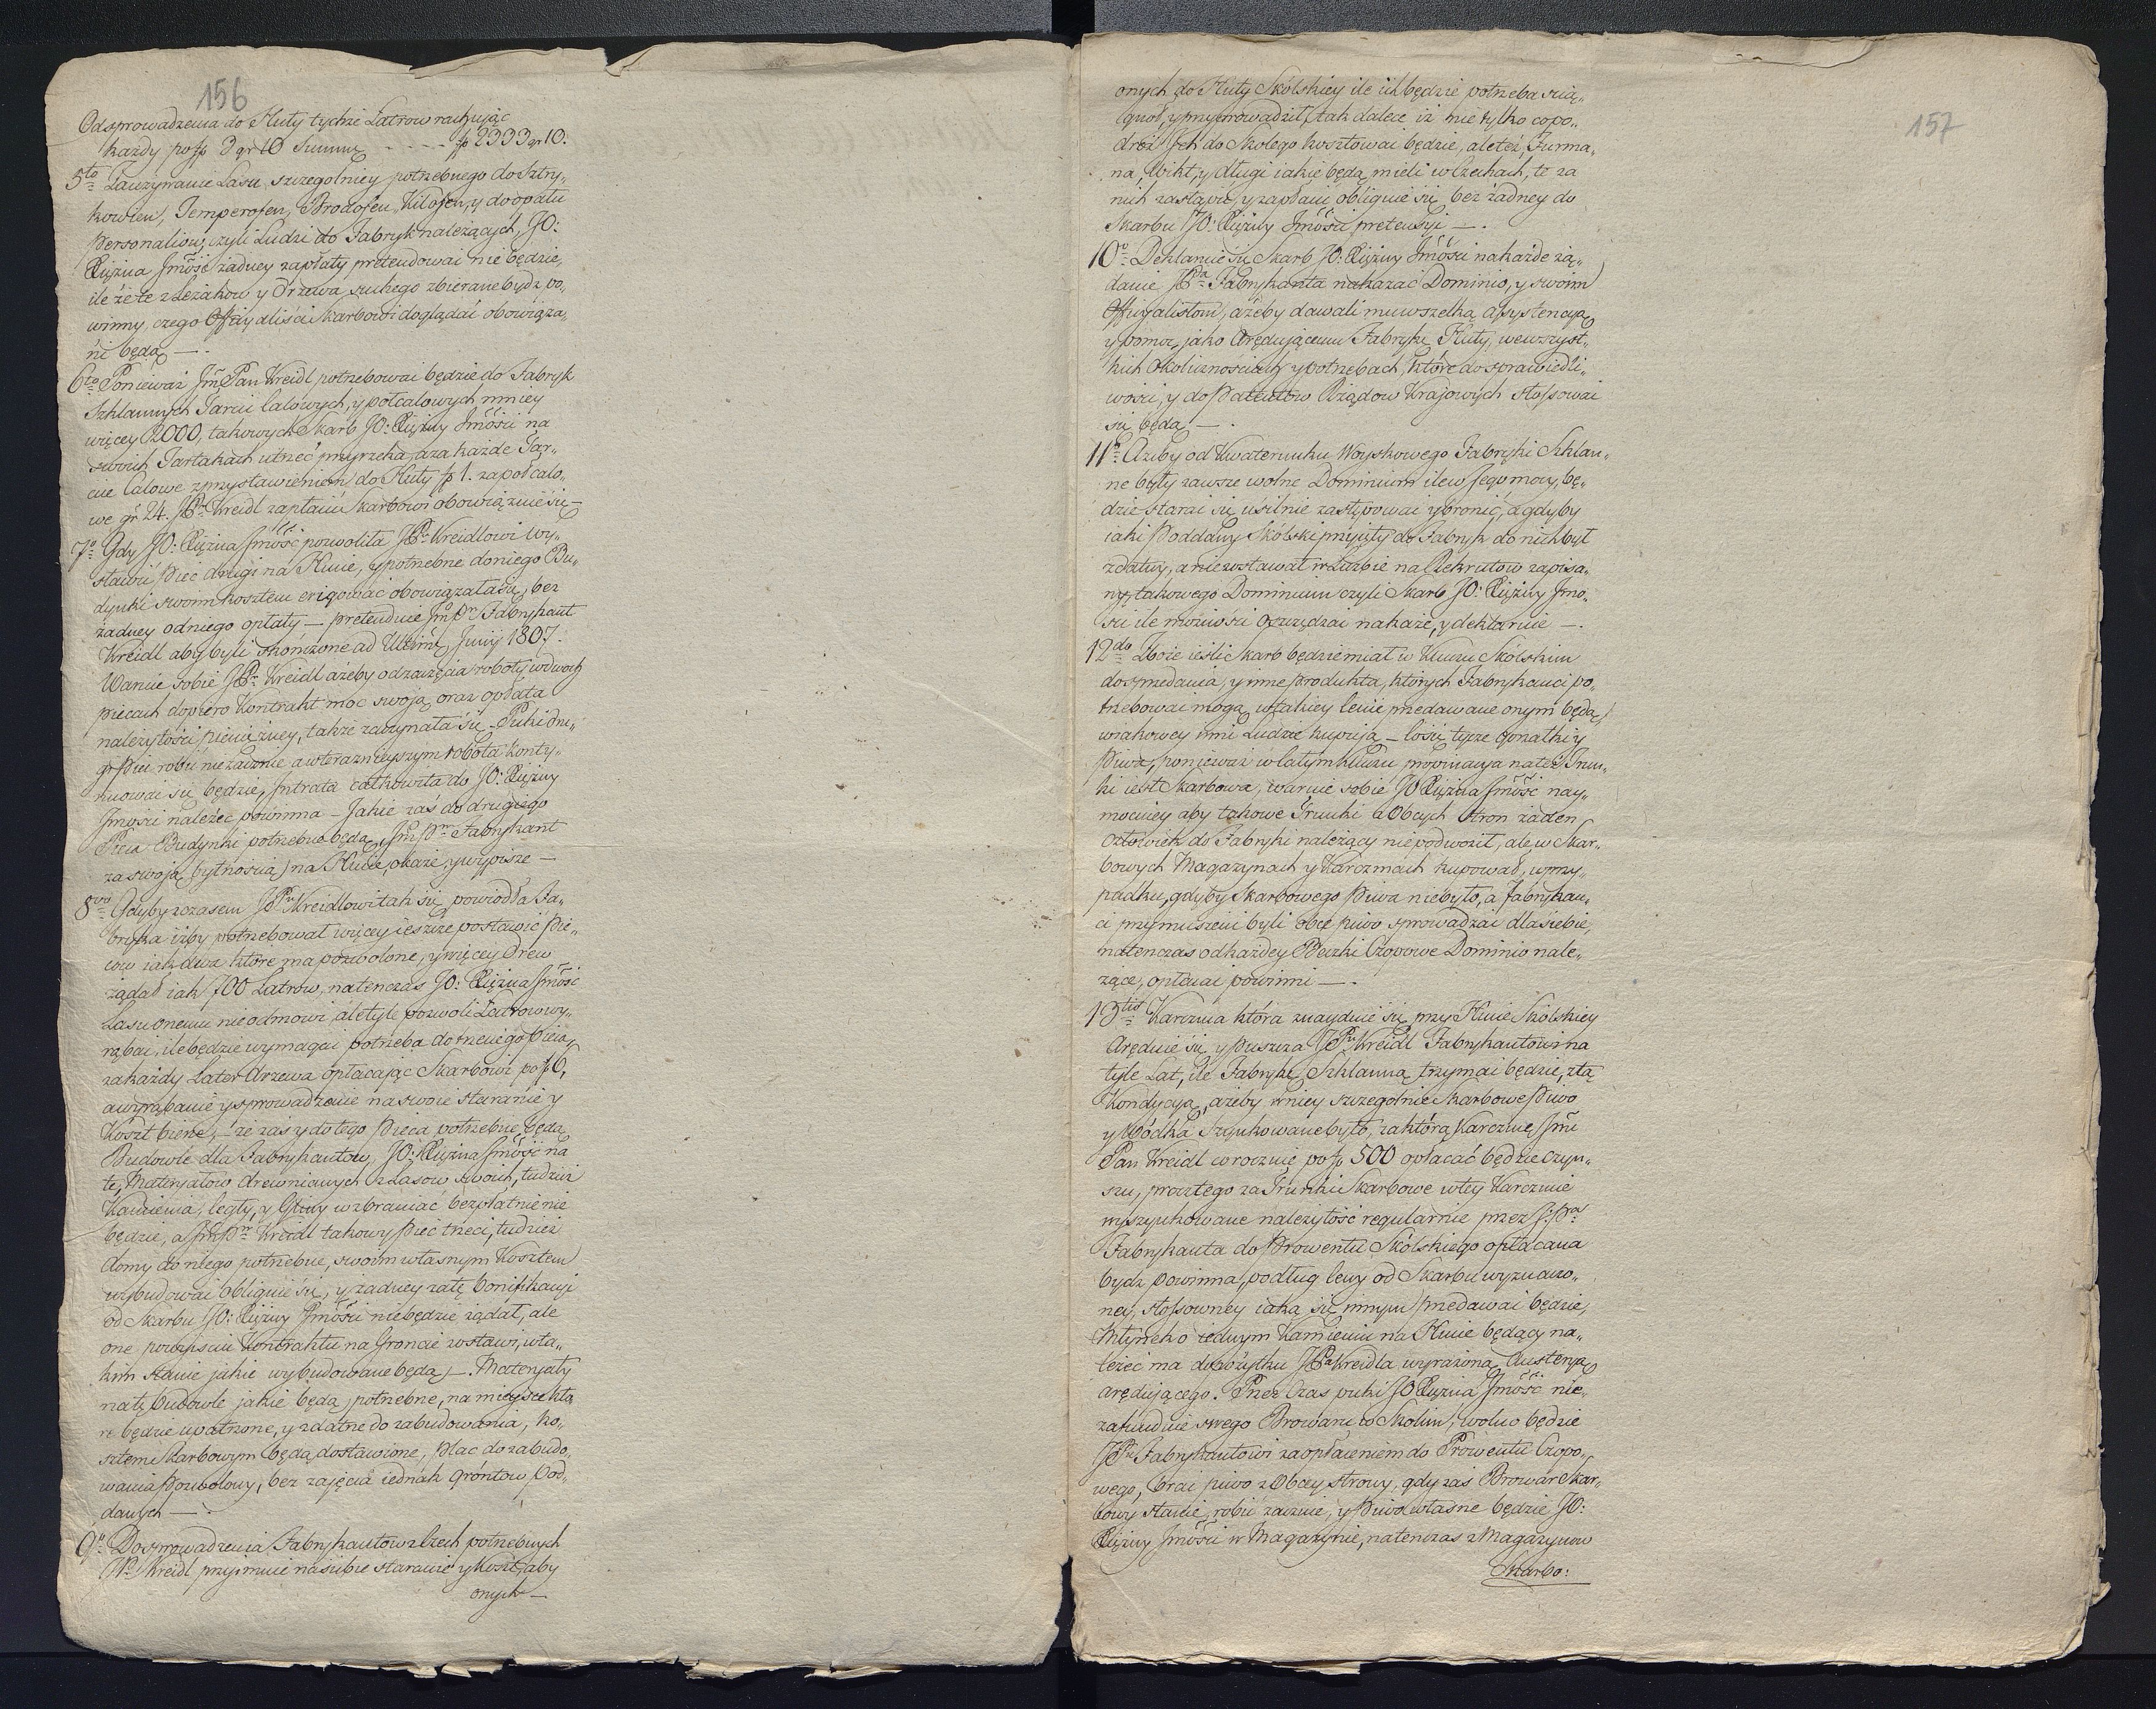 156
Odsprowadzenia do Huty tychże Latrow rachując
każdy po fp 3 gr 10 Summę - - - - fp 2333 gr 10.
5to Zauzywanie Lasu szczegolniey potrzebnego do Sztry„
kowien, Temperofen, Brodofen, Kilofen, y do opału
Personaliow, czyli Ludzi do Fabryk należących, JO:
Xiężna Jmość żadney zapłaty pretendować nie będzie,
ile że te z Leżakow y Drzewa suchego zbierane bydz po„
winny, czego Officyaliści Skarbowi doglądać obowiąza„
ni będą —.
6to Ponieważ Jm̃ Pan Kreidl potrzebować będzie do Fabryk
Szklannych Tarcic Calowych, y połcalowych mniey
więcey 2000, takowych Skarb JO: Xiężny Jmości na
swoich Tartakach utrzeć przyrzeka, a za każde Tar„
cie Calowe z przystawieniem do Huty fp 1. za połcalo„
we gr 24. JPn Kreidl zapłacić Skarbowi obowiązuie się —
7o Gdy JO: Xiężna Jmość pozwoliła JPu Kreidlowi wy„
stawić Piec drugi na Hucie, y potrzebne do niego Bu„
dynki swoim kosztem erigować obowiązała się, bez
żadney od niego opłaty — pretenduie Jm̃ Pn Fabrykant
Kreidl aby byli skończone ad Ultimã Junij 1807.
Waruie sobie JPn Kreidl ażeby od zaczęcia roboty w dwoch
piecach dopiero Kontrakt moc swoją, oraz opłata
należytości pieniężney, także zaczynała się — Poki dru„
gi Piec robić nie zacznie a w teraznieyszym robota konty„
nuować się będzie, Intrata całkowita do JO: Xiężny
Jmości należeć powinna — Jakie zaś do drugiego
Pieca Budynki potrzebne będą, Jm̃ Pn Fabrykant
za swoją bytnością na Hucie, okaże, y wypisze —
8vo Gdyby z czasem JPu Kreidlowi tak się powiodła Fa„
bryka iżby potrzebował więcey ieszcze postawić Pie„
cow iak dwa ktore ma pozwolone, y więcey Drew
żądał iak 700 Latrow, natenczas JO: Xiężna Jmość
Lasu onemu nie odmowi, ale tyle pozwoli Latrow wy„
rąbać, ile będzie wymagać potrzeba do trzeciego Pieca,
za każdy Later drzewa opłacając Skarbowi po fp 6,
a wyrąbanie y sprowadzenie na swoie staranie y
Koszt bierze, — że zaś y do tego Pieca potrzebne będą
Budowle dla Fabrykantow, JO: Xiężna Jmość na
te, Materyałow drewnianych z Lasow swoich, tudzież
Kamienia, Cegły, y Gliny wzbraniać bezpłatnie nie
będzie, a Jm̃ Pn Kreidl takowy Piec trzeci, tudzież
domy do niego potrzebne, swoim własnym Kosztem
wybudować obliguie się, y żadney zatę Bonifikacyi
od Skarbu JO: Xiężny Jmości nie będzie żądał, ale
one po wyisciu Kontraktu na Gruncie zostawi, w ta„
kim stanie jakie wybudowane będą —. Materyały
na tę budowle jakie będą potrzebne, na mieysce kto„
re będzie upatrzone, y zdatne do zabudowania, ko„
sztem Skarbowym będą dostawione, Plac do zabudo„
wania pozwolony, bez zajęcia iednak gróntow Pod„
danych —.
9o Do sprowadzenia Fabrykantow z Czech potrzebnych
JPn Kreidl przyimuie na siebie staranie y Koszt, aby
onych —
157
onych do Huty Skólskiey ile ich będzie potrzeba scią„
gnoł, y przyprowadził, tak dalece iż nie tylko co po„
droż Jch do Skolego kosztować będzie, ale też, Furma„
na, wikt, y długi iakie będą mieli w Czechach, te za
nich zastąpić, y zapłacić obliguie się bez żadney do
Skarbu JO: Xiężny Jmości pretensyi —.
10o Deklaruie się Skarb JO: Xiężny Jmości na każde żą„
danie JPa Fabrykanta nakazać Dominio, y swoim
Officyalistom, ażeby dawali mu wszelką assystencyą
y pomoc, jako Arędującemu Fabrykę Huty, we wszyst„
kich okolicznościach y potrzebach, które do sprawiedli„
wości, y do Patentow Rządow Krajowych stossować
się będą —.
11o Azeby od Kwaterunku Woyskowego Fabryki Szklan„
ne były zawsze wolne Dominium ile w Jego mocy, bę„
dzie starać się usilnie zastępować y bronić, a gdyby
iaki Poddany Skólski przyięty do Fabryk do nich był
zdatny, a nie zostawał w Liczbie na Rekrutow zapisa„
ny, takowego Dominium czyli Skarb JO: Xiężny Jmo„
sci ile możności oszczędzać nakaże, y deklaruie —.
12do Zboże ieśli Skarb będzie miał w Kluczu Skólskim
do sprzedania, y inne produkta, których Fabrykanci po„
trzebować mogą, w takiey Cenie przedawane onym będą,
w iakowey inni Ludzie kupują — Coś się tycze Gorzałki y
Piwa, ponieważ w całym Kluczu propinacya na te Trun„
ki iest Skarbowa, waruie sobie JO Xiężna Jmość nay„
mocniey aby takowe Trunki z Obcych stron żaden
Człowiek do Fabryki należący nie podwoził, ale w Skar„
bowych Magazynach y Karczmach kupował, w przy„
padku, gdyby Skarbowego Piwa nie było, a Fabrykan„
ci przymuszeni byli obce piwo sprowadzać dla siebie,
natenczas od każdey Beczki Czopowe Dominio nale„
żące, opłacać powinni —.
13tio Karczma która znayduie się przy Hucie Skolskiey
Aręduie się y puszcza JPu Kreidl Fabrykantowi na
tyle Lat, ile Fabrykę Szklanną trzymać będzie, z tą
Kondycyą, ażeby w niey szczegolnie Skarbowe Piwo
y Wódka Szynkowane było, za którą Karczmę Jm̃
Pan Kreidl corocznie po fp 500 opłacać będzie czyn„
szu, procz tego za Trunki Skarbowe w tey Karczmie
wyszynkowane należytość regularnie przez J:Pa
Fabrykanta do Prowentu Skólskiego opłacana
bydz powinna, podług Ceny od Skarbu wyznaczo„
ney, stossowney iaką się innym przedawać będzie,
Młynek o iednym Kamieniu na Hucie będący na„
leżeć ma do pożytku JPa Kreidla wyrażoną Austeryę
arędującego. Przez Czas puki JO Xiężna Jmość nie
zafunduie swego Browaru w Skolim, wolno będzie
JPu Fabrykantowi za opłaceniem do Prowentu Czopo„
wego, brać piwo z Obcey strony, gdy zaś Browar Skar„
bowy stanie, robić zacznie, y Piwo własne będzie JO:
Xiężny Jmości w Magazynie, natenczas z Magazynow
Skarbo: